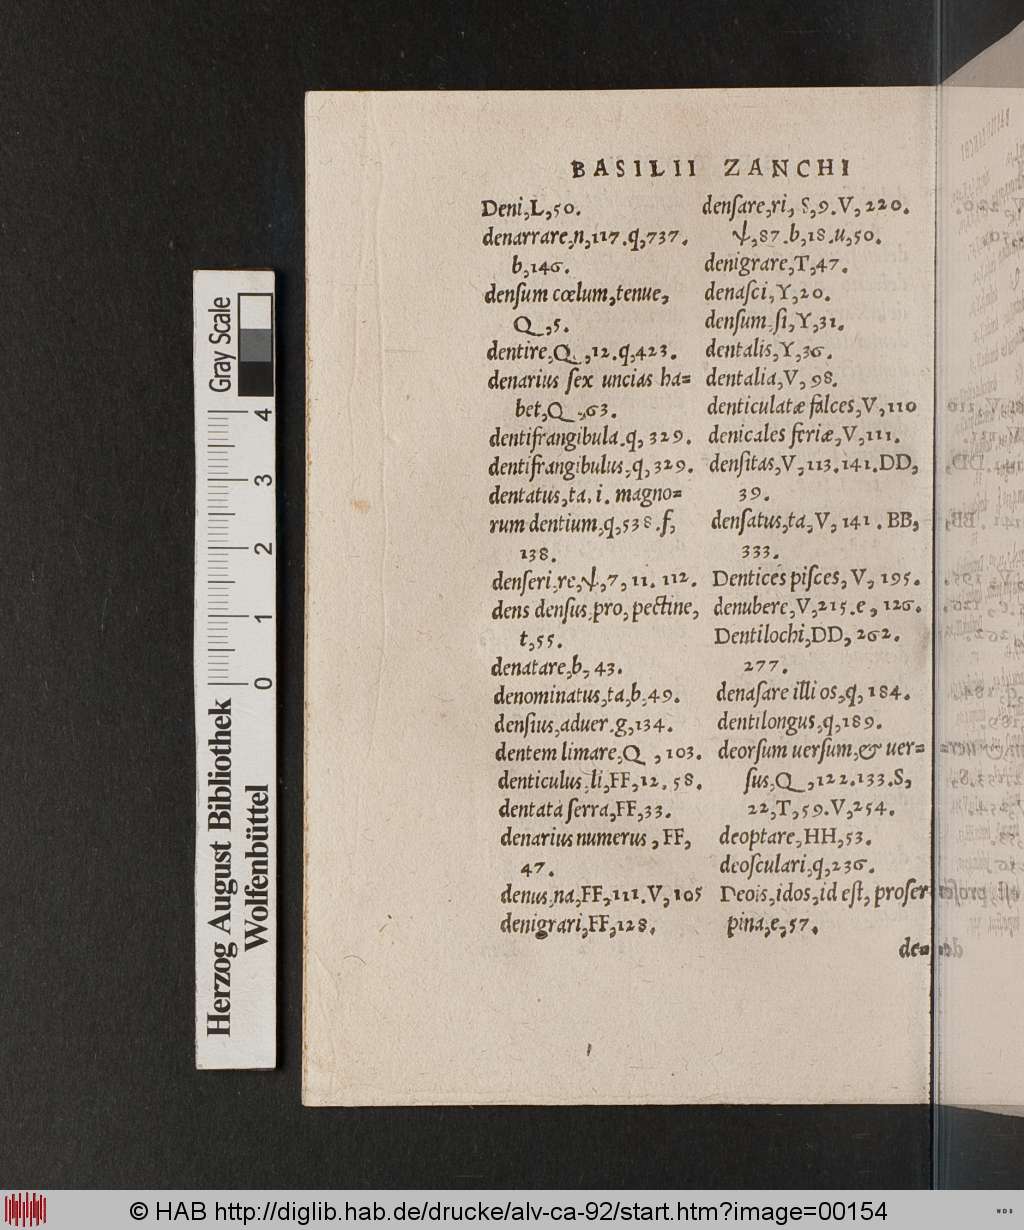 BASILII ZANCHI
Deni,L,50.
denarrare,n,117.q,737.
b,146.
denſum cœlum,tenue,
Q,5.
dentire,Q,12.q,423.
denarius ſex uncias ha=
bet,Q,63.
dentifrangibula.q,329.
dentifrangibulus,q,329.
dentatus,ta,i. magno=
rum dentium,q,538.f,
138.
denſeri,re,ψ,7,11.112.
dens denſus,pro,pectine,
t,55.
denatare,b,43.
denominatus,ta,b,49.
denſius,aduer.g,134.
dentem limare,Q,103.
denticulus,li,FF,12.58.
dentata ſerra,FF,33.
denarius numerus,FF,
47.
denus,na,FF,111.V,105
denigrari,FF,128.
denſare,ri,S,9.V,220.
ψ,87.b,18.u,50.
denigrare,T,47.
denaſci,Y,20.
denſum,ſi,Y,31.
dentalis,Y,36.
dentalia,V,98.
denticulatæ falces,V,110
denicales feriæ,V,111.
denſitas,V,113.141.DD,
39.
denſatus,ta,V,141.BB,
333.
Dentices piſces,V,195.
denubere,V,215.e,126.
Dentilochi,DD,262.
277.
denaſare illi os,q,184.
dentilongus,q,189.
deorſum uerſum,& uer=
ſus,Q,122.133.S,
22,T,59.V,254.
deoptare,HH,53.
deoſculari,q,236.
Deois,idos,id eſt,proſer
pina,e,57.
de=
Gray Scale
4
3
2
1
0
Herzog August Bibliothek
Wolfenbüttel
© HAB http://diglib.hab.de/drucke/alv-ca-92/start.htm?image=00154